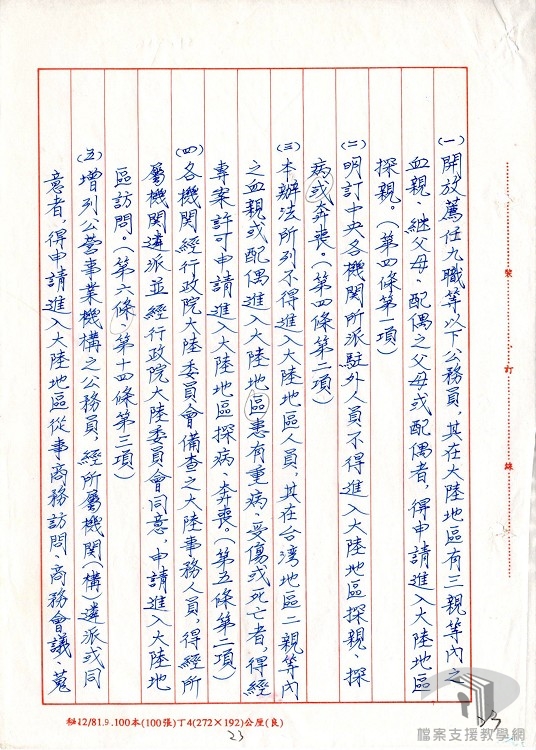 (一)開放薦任九職等以下公務員，其在大陸地區有三親等內之
血親、繼父母、配偶之父母或配偶者，得申請進入大陸地區
探親。(第四條第一項)
(二)明訂中央各機關所派駐外人員不得進入大陸地區探親、探
病或奔喪。(第四條第二項)
(三)本辦法所列不得進入大陸地區人員，其在台灣地區二親等內
之血親或配偶進入大陸地區患有重病、受傷或死亡者，得經
專案許可申請進入大陸地區探病、奔喪。(第五條第二項)
(四)各機關經行政院大陸委員會備查之大陸事務人員，得經所
屬機關遴派並經行政院大陸委員會同意，申請進入大陸地
區訪問。(第六條、第十四條第三項)
(五)增列公營事業機構之公務員，經所屬機關(構)遴派或同
意者，得申請進入大陸地區從事商務訪問、商務會議、蒐
裝
訂
線
秘12/81.9.100本(100張)丁4(272×192)公厘(良)
23
23
檔案支援教學網